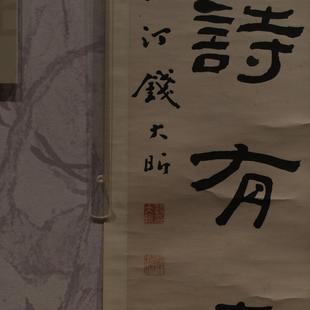 詩有
汀錢大昕